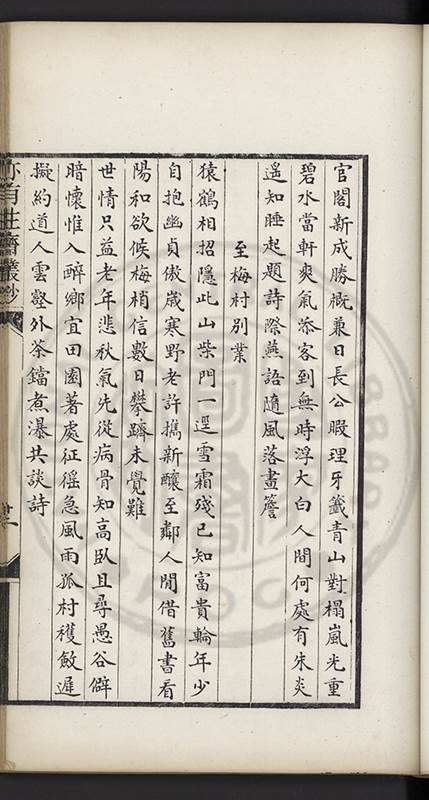 官閣新成勝概兼日長公暇理牙籤青山對榻嵐光重
碧水當軒爽氣添客到無時浮大白人間何處有朱炎
遥知睡起題詩際燕語隨風落畫簷
至梅村别業
猿鶴相招隱此山柴門一逕雪霜殘已知富貴輪年少
自抱幽貞傲歳寒野老許攜新釀至鄰人閒借舊書看
陽和欲候梅梢信數日攀躋未覺難
世情只益老年悲秋氣先從病骨知高臥且尋愚谷僻
暗懷惟入醉鄉宜田園著處征徭急風雨孤村穫斂遲
擬約道人雲壑外茶鐺煮瀑共談詩
亦有生齋叢鈔